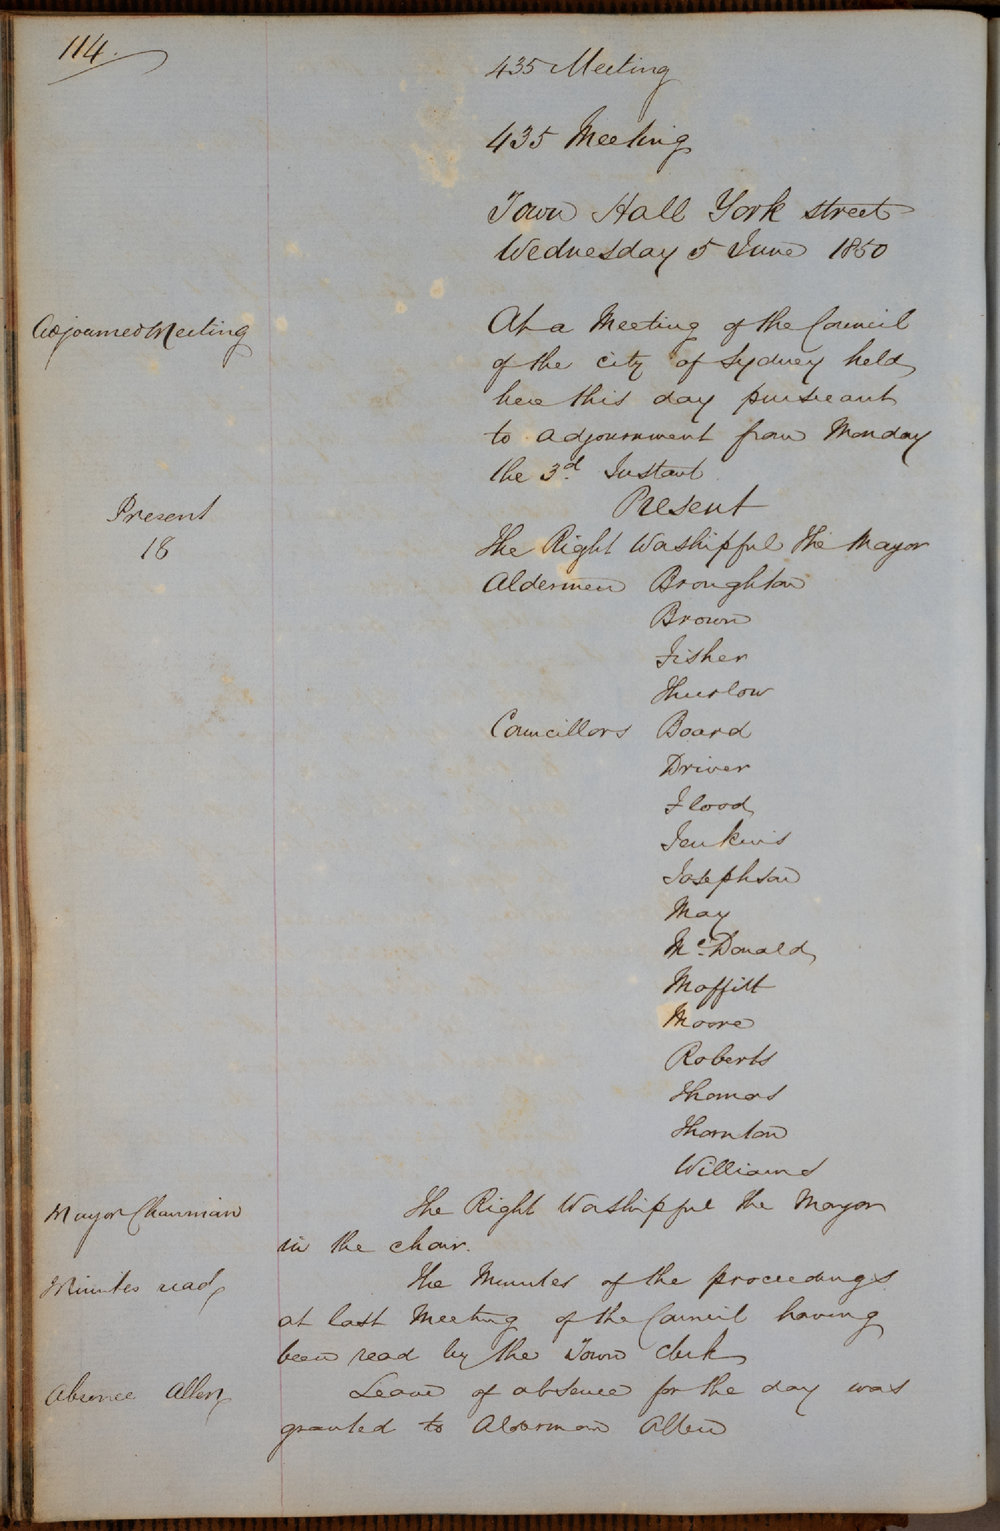 114.
435 Meeting
435 Meeting
Town Hall York street
Wednesday 5 June 1850
Adjourned Meeting
At a Meeting of the Council
of the city of Sydney held
here this day pursuant
to adjournment from Monday
the 3d. Instant
Present
Present
18
The Right Worshipful The Mayor
Aldermen Broughton
Brown
Fisher
Thurlow
Councillors Board
Driver
Flood
Jenkins
Josephson
May
Mc.Donald
Moffitt
Moore
Roberts
Thomas
Thornton
Williams
Mayor Chairman
The Right Worshipful the Mayor
in the chair.
Minutes read
The Minutes of the proceedings
at last Meeting of the Council having
been read by the Town clerk
Absence Allen
Leave of absence for the day was
granted to Alderman Allen